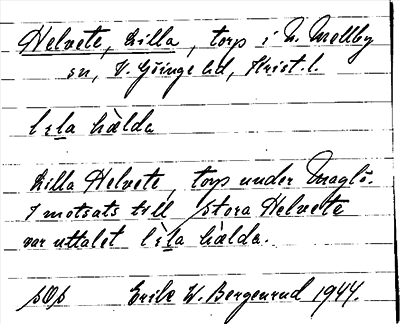 Helvete, Lilla, torp i N. Mellby
sn, V. Göinge hd, Krist. l.
lɛla hælda
Lilla Helvete, torp under Maglö.
I motsats till stora Helvete
var uttalet lɛla hælda.
sOs Erik W. Bergenrud 1944.